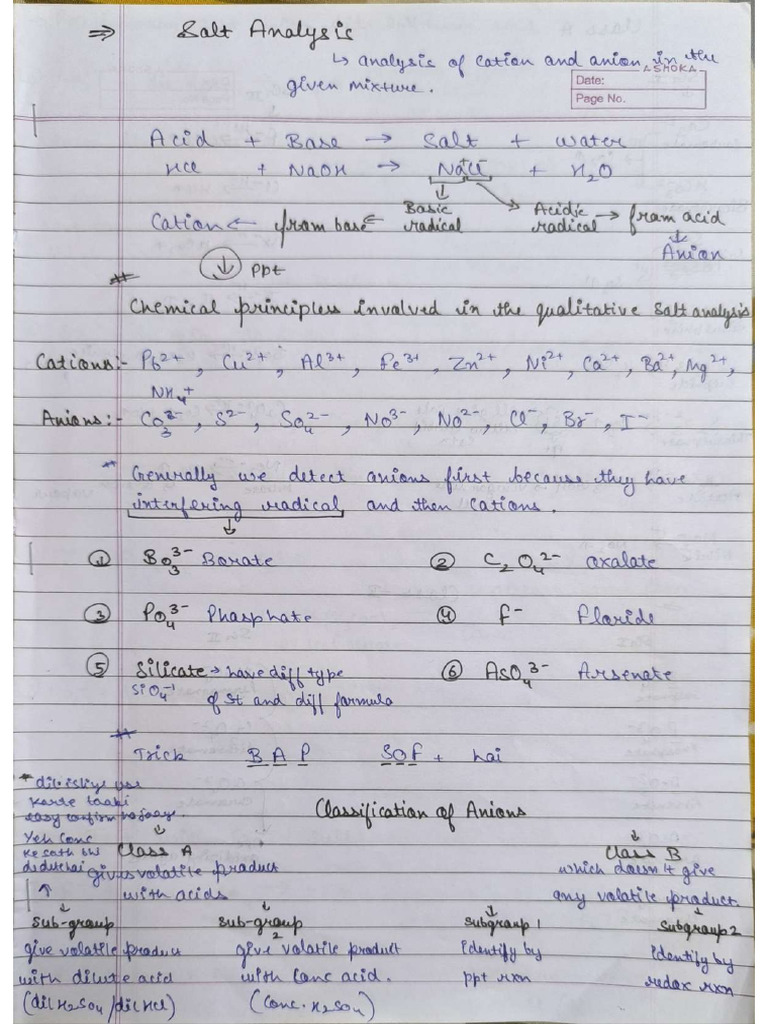 ⇒ Salt Analysis
↳ analysis of cation and anion in the
given mixture.
ASHOKA
Date:
Page No.
Acid + Base → Salt + Water
HCl + NaOH → Na⁺Cl⁻ + H₂O
Cation ← from base ← Basic radical Acidic radical → from acid
↓
Anion
↓ ppt
# Chemical principless involved in the qualitative salt analysis
Cations:- Pb²⁺, Cu²⁺, Al³⁺, Fe³⁺, Zn²⁺, Ni²⁺, Ca²⁺, Ba²⁺, Mg²⁺,
NH₄⁺
Anions:- CO₃²⁻, S²⁻, SO₄²⁻, NO³⁻, NO²⁻, Cl⁻, Br⁻, I⁻
* Generally we detect anions first because they have
interfering radical and then cations.
① BO₃³⁻ Borate ② C₂O₄²⁻ oxalate
③ PO₄³⁻ Phasphate ④ F⁻ Floride
⑤ Silicate → have diff type ⑥ AsO₄³⁻ Arsenate
SiO₄⁻¹ of st and diff formula
* Trick B A P SOF + hai
* dil.isliye use
karte taaki
easy confirm ho jaay.
Yeh Conc
ke sath bhi
Classification of Anions
Class A
gives volatile product
with acids
Class B
which doesn't give
any volatile product.
sub-group
give volatile product
with dilute acid
(dil H₂SO₄/dil HCl)
sub-group
2
give volatile product
with Conc acid.
(Conc. H₂SO₄)
subgroup 1
identify by
ppt rxn
subgroup 2
identify by
redox rxn